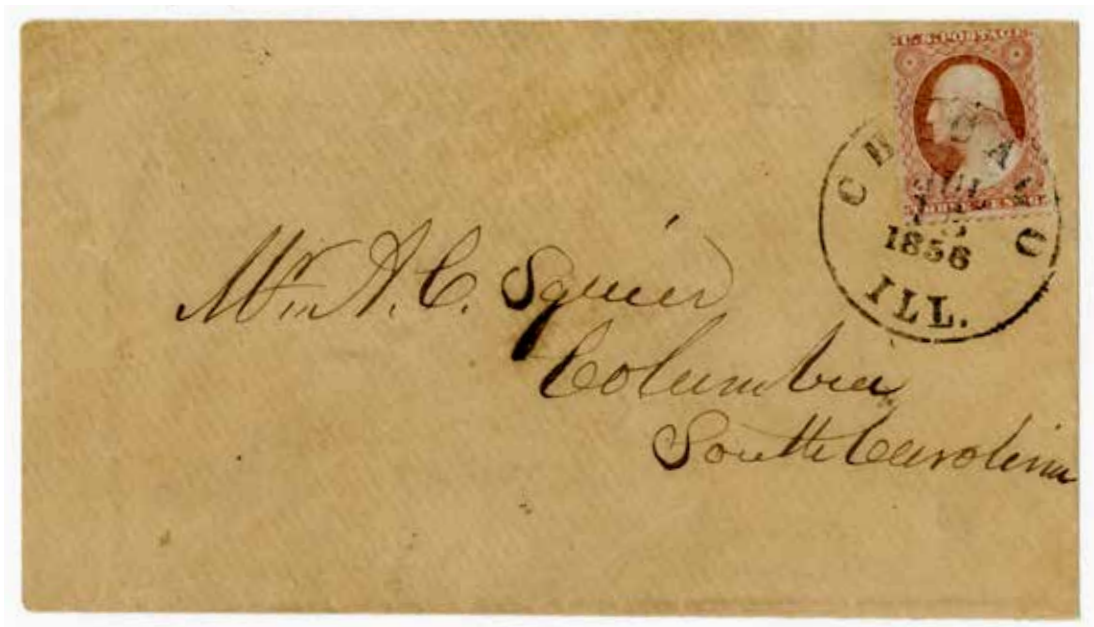 U.S. POSTAGE
THREE CENTS
CHICAGO
JUL
1856
ILL.
Mr. A. C. Squier
Columbia
South Carolina